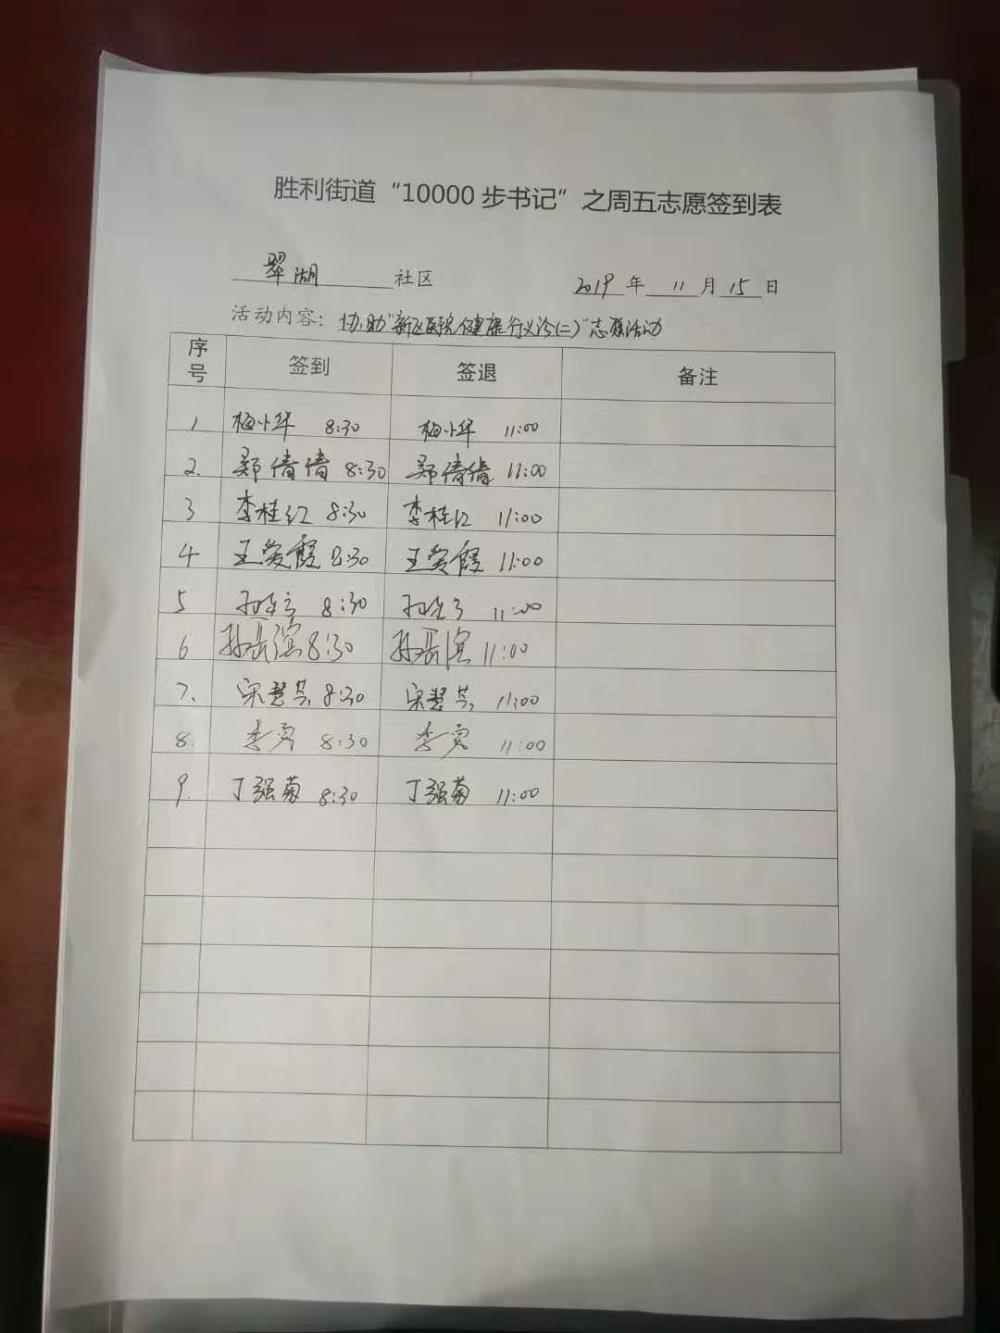 胜利街道“10000步书记”之周五志愿签到表
翠湖 社区 2019 年 11 月 15 日
活动内容：协助"新区医院健康行义诊(二)"志愿活动
序号 签到 签退 备注
1 梅小华 8:30 梅小华 11:00
2. 郑倩倩 8:30 郑倩倩 11:00
3 李桂红 8:30 李桂红 11:00
4 王爱霞 8:30 王爱霞 11:00
5 8:30 11:00
6 8:30 11:00
7. 宋慧芸 8:30 宋慧芸 11:00
8. 李勇 8:30 李勇 11:00
9. 丁强菊 8:30 丁强菊 11:00